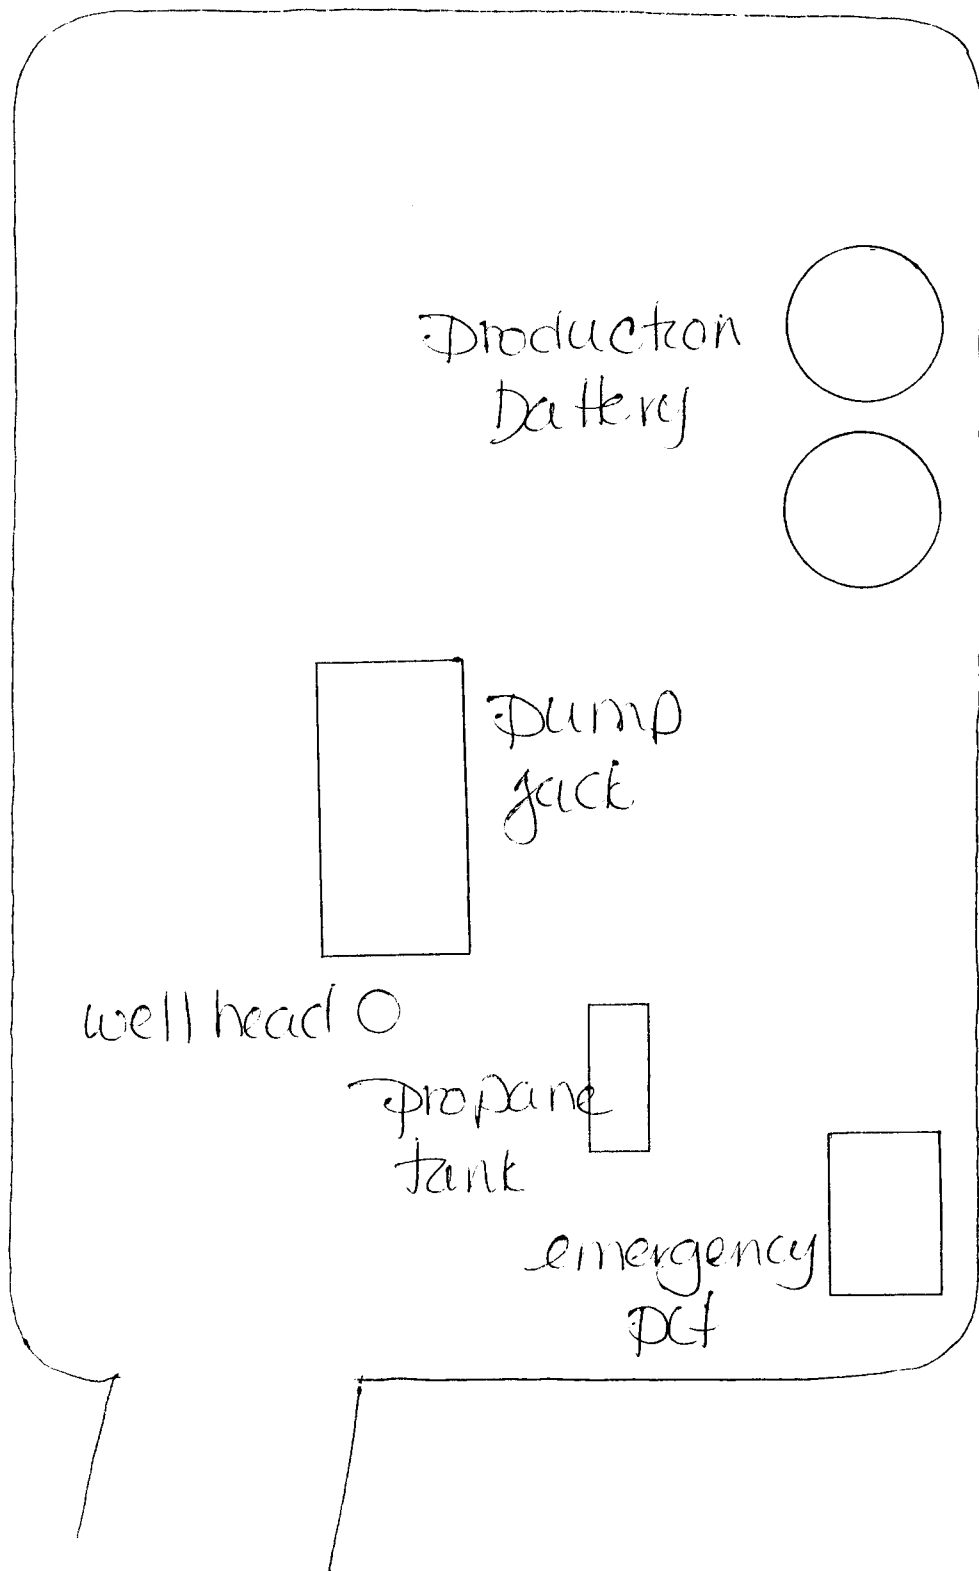 production
battery
pump
jack
well head
propane
tank
emergency
pit